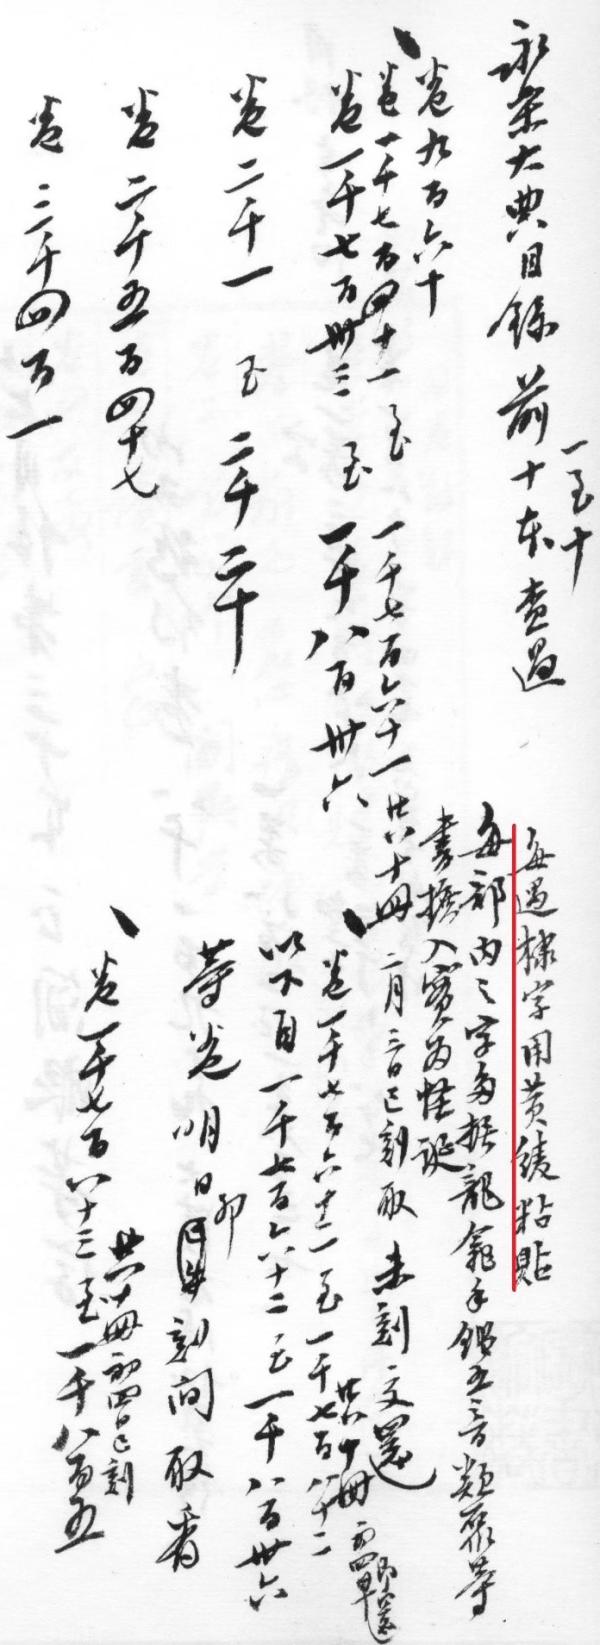 永樂大典目錄前十本查過
一至十
卷九百六十
卷一千七百四十一至一千七百六十一 共十冊 二月三日巳刻取 未刻交還
卷一千七百卅三至一千八百卅六
卷二千一至二千二十
卷二千五百四十七
卷三千四百一
每遇隸字用黃綾粘貼
每部內之字多據龍龕手鑑五音類聚等
書攙入實為怪誕
卷一千七百六十二至一千七百八十二 共十冊 初四早 還
以下自一千七百六十二至一千八百卅六
等卷明日卯刻間取看
卷一千七百八十三至一千八百五
共十冊初四巳刻